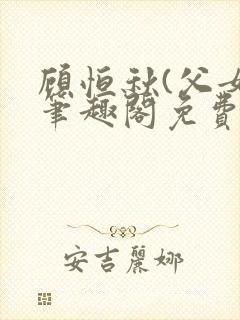 顾恒秋(父女
笔趣阁免费
安吉麗娜